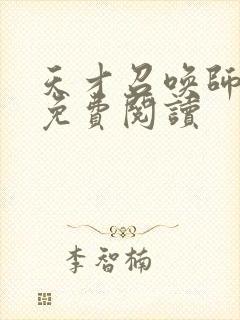 天才召喚師
免費閱讀
李智楠